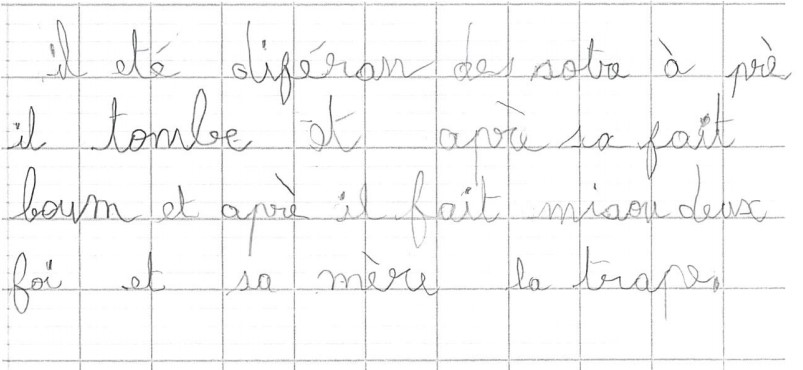 il eté diféran des sotre à prè
il tombe et aprè sa fait
boum et aprè il fait miaou deux
foi et sa mère la trape.